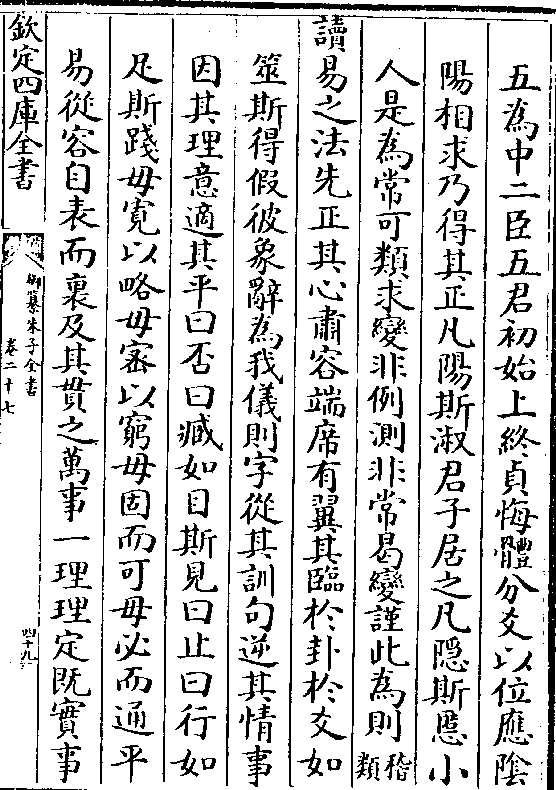 五為中二臣五君初始上終貞悔體分爻以位應陰
陽相求乃得其正凡陽斯淑君子居之凡陰斯慝小
人是為常可類求變非例測非常曷變謹此為則稽類
讀易之法先正其心肅容端席有翼其臨於卦於爻如
筮斯得假彼象辭為我儀則字從其訓句逆其情事
因其理意適其平曰否曰臧如目斯見曰止曰行如
足斯踐毋寛以略毋密以窮毋固而可毋必而通平
易從容自表而裏及其貫之萬事一理理定既實事
欽定四庫全書
御纂朱子全書
卷二十七
四十九